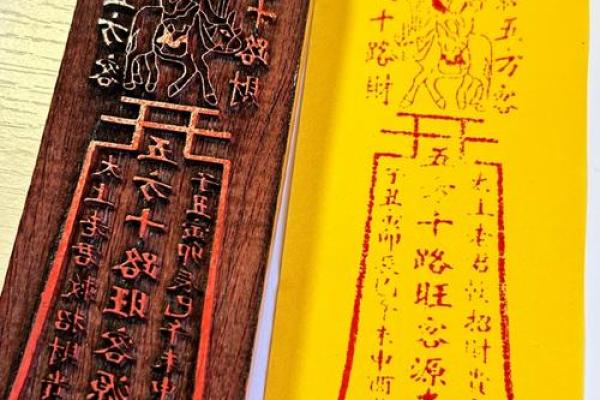 五方客
十路財
五方十路旺客源
太上老君敕招財貴
子丑寅卯辰巳午未申
五方客
十路財
五方十路旺客源
太上老君敕招財貴
子丑寅卯辰巳午未申酉